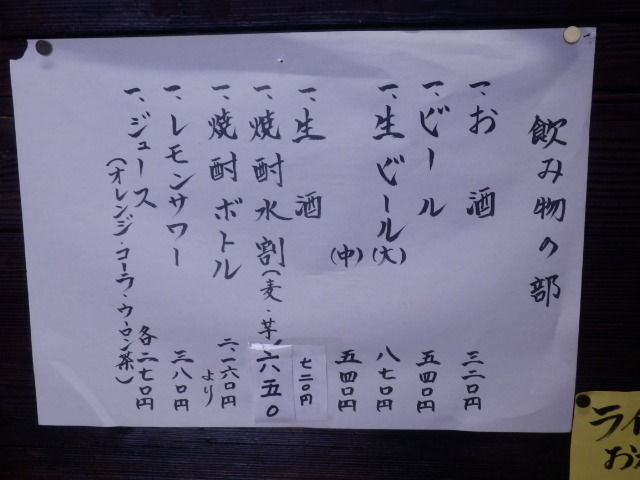 飲み物の部
一、お酒 三二〇円
一、ビール 五四〇円
一、生ビール(大) 八七〇円
(中) 五四〇円
一、生酒 七二〇円
一、焼酎水割(麦・芋) 六五〇
一、焼酎ボトル 二、一六〇円より
一、レモンサワー 三八〇円
一、ジュース 各二七〇円
(オレンジ・コーラ・ウーロン茶)
ライ
お